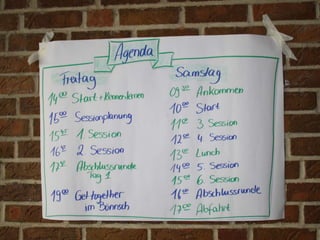 Agenda
Freitag
14:00 Start + Kennenlernen
15:00 Sessionplanung
15:45 1. Session
16:45 2. Session
17:45 Abschlussrunde
Tag 1
19:00 Get together
im Bönnsch
Samstag
09:30 Ankommen
10:00 Start
11:00 3. Session
12:00 4. Session
13:00 Lunch
14:00 5. Session
15:00 6. Session
16:00 Abschlussrunde
17:00 Abfahrt